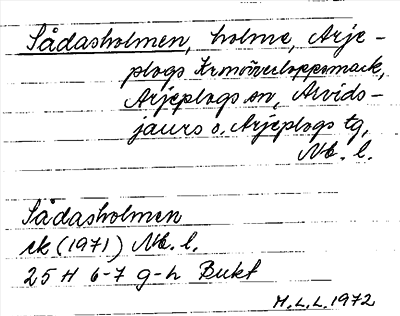 Sådasholmen, holme, Arje-
plogs Krmöverloppsmark,
Arjeplogs sn, Arvids-
jaurs o. Arjeplogs tg,
Nb. l.
Sådasholmen
ek (1971) Nb. l.
25 H 6-7 g-h Bukt
H.L.L. 1972